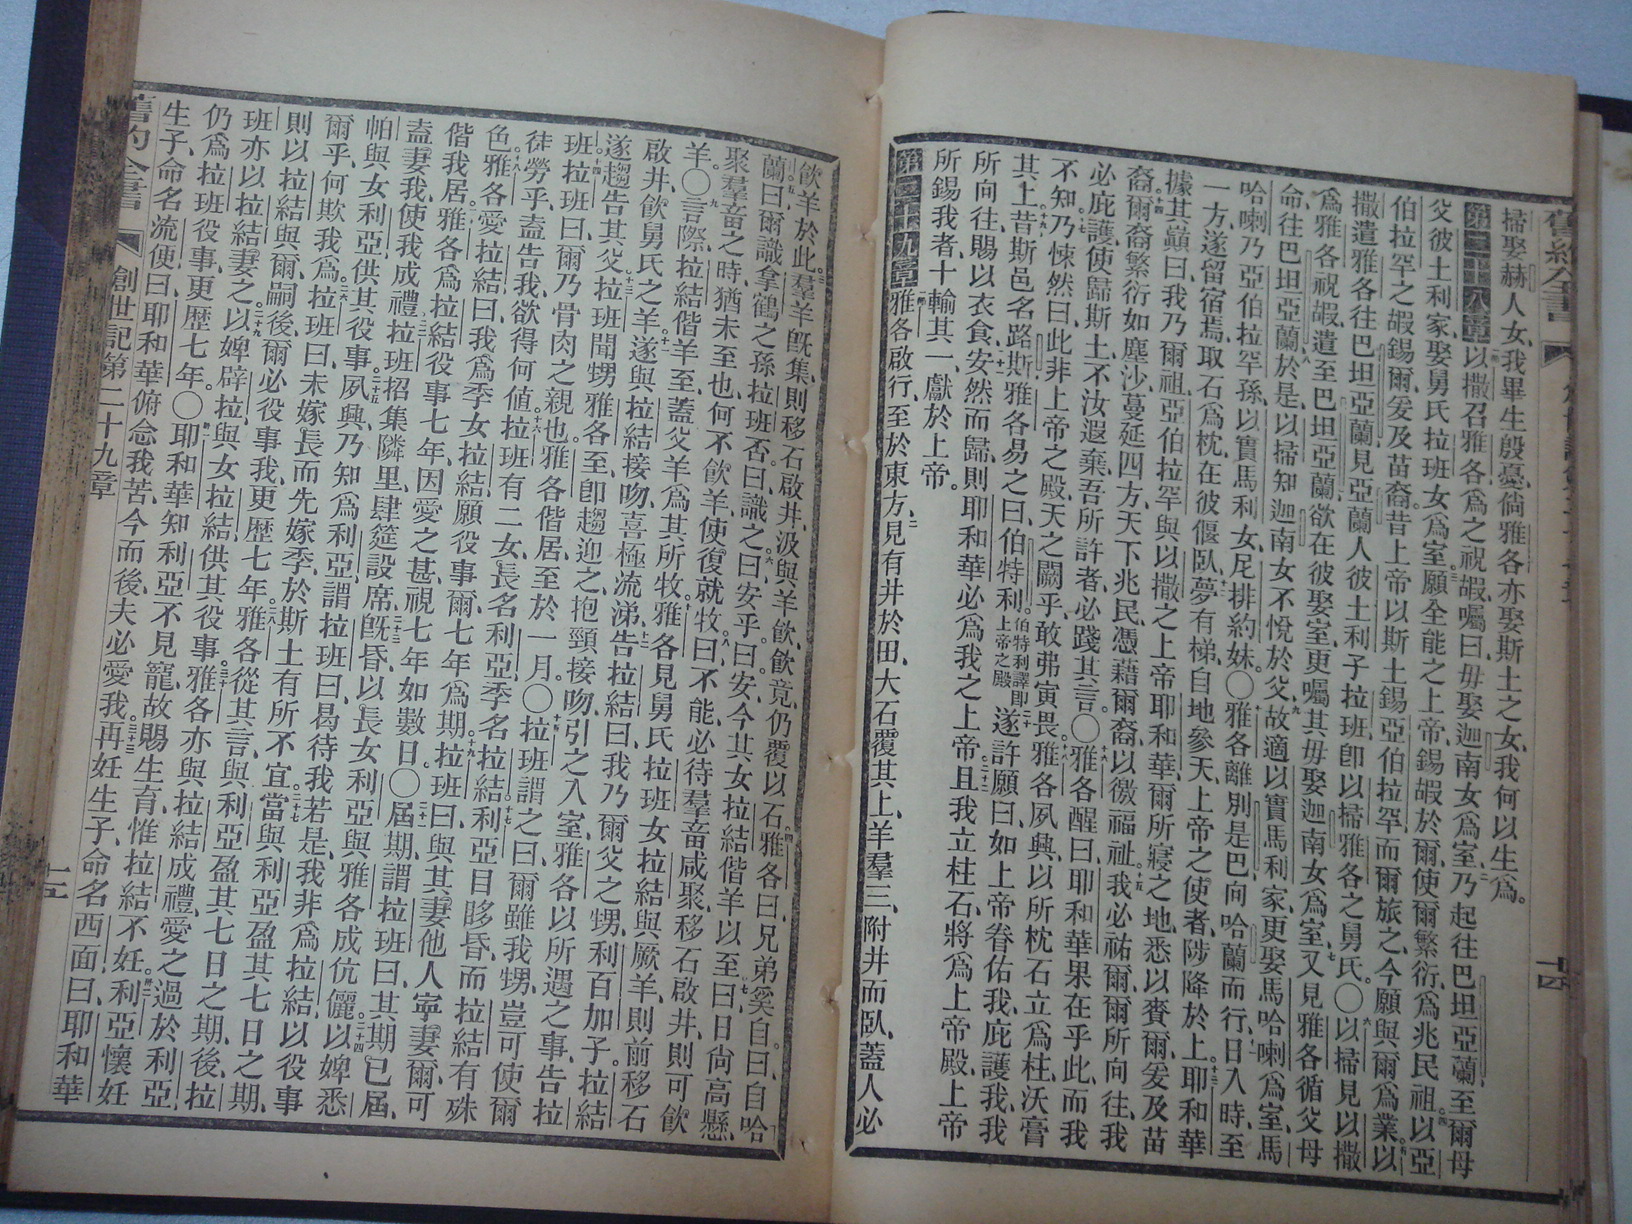 舊約全書
十四
掃娶赫人女、我畢生殷憂、倘雅各亦娶斯土之女、我何以生爲。
第二十八章 以撒召雅各、爲之祝嘏、囑曰、毋娶迦南女爲室、乃起往巴坦亞蘭、至爾母
父彼土利家、娶舅氏拉班女爲室、願全能之上帝、錫嘏於爾、使爾繁衍、爲兆民祖、以亞
伯拉罕之嘏、錫爾、爰及苗裔、昔上帝以斯土錫亞伯拉罕、而爾旅之、今願與爾爲業、以
撒遣雅各往巴坦亞蘭、見亞蘭人彼土利子拉班、卽以掃雅各之舅氏。〇以掃見以撒
爲雅各祝嘏、遣至巴坦亞蘭、欲在彼娶室、更囑其毋娶迦南女爲室、又見雅各循父母
命、往巴坦亞蘭、於是以掃知迦南女不悅於父、故適以實馬利家、更娶馬哈喇爲室、馬
哈喇乃亞伯拉罕孫、以實馬利女、尼排約妹。〇雅各離別是巴、向哈蘭而行、日入時、至
一方、遂留宿焉、取石爲枕、在彼偃臥、夢有梯、自地參天、上帝之使者、陟降於上、耶和華
據其巔、曰、我乃爾祖亞伯拉罕、與以撒之上帝耶和華、爾所寢之地、悉以賚爾、爰及苗
裔、爾裔繁衍如塵沙、蔓延四方、天下兆民、憑藉爾裔、以徼福祉、我必祐爾、爾所向往、我
必庇護、使歸斯土、不汝遐棄、吾所許者、必踐其言。〇雅各醒曰、耶和華果在乎此、而我
不知、乃悚然曰、此非上帝之殿、天之闕乎、敢弗寅畏、雅各夙興、以所枕石立爲柱、沃膏
其上、昔斯邑名路斯、雅各易之曰、伯特利。伯特利譯卽上帝之殿 遂許願曰、如上帝眷佑我、庇護我、我
所向往、賜以衣食、安然而歸、則耶和華必爲我之上帝、且我立柱石、將爲上帝殿、上帝
所錫我者、十輸其一、獻於上帝。
第二十九章 雅各啟行、至於東方、見有井於田、大石覆其上、羊羣三、附井而臥、蓋人必
飲羊於此、羣羊旣集、則移石啟井、汲與羊飲、飲竟、仍覆以石、雅各曰、兄弟奚自、曰、自哈
蘭、曰、爾識拿鶴之孫拉班否、曰、識之、曰、安乎。曰、安、今其女拉結偕羊以至、曰、日尙高懸、
聚羣畜之時猶未至也、何不飲羊、使復就牧、曰、不能、必待羣畜咸聚、移石啟井、則可飲
羊。〇言際、拉結偕羊至、蓋父羊爲其所牧、雅各見舅氏拉班女拉結、與厥羊、則前移石
啟井、飲舅氏之羊、遂與拉結接吻、喜極流涕、告拉結曰、我乃爾父之甥、利百加子。拉結
遂趨告其父、拉班聞甥雅各至、卽趨迎之、抱頸接吻、引之入室、雅各以所遇之事告拉
班、拉班曰、爾乃骨肉之親也、雅各偕居、至於一月。〇拉班謂之曰、爾雖我甥、豈可使爾
徒勞乎、盍告我、欲得何値、拉班有二女、長名利亞、季名拉結、利亞目眵昏、而拉結有殊
色、雅各愛拉結曰、我爲季女拉結、願役事爾七年爲期。拉班曰、與其妻他人、寧妻爾、可
偕我居、雅各爲拉結役事七年、因愛之甚、視七年如數日。〇屆期、謂拉班曰、其期已屆、
盍妻我、使我成禮、拉班招集隣里、肆筵設席、旣昏、以長女利亞與雅各成伉儷、以婢悉
帕與女利亞、供其役事、夙興、乃知爲利亞、謂拉班曰、曷待我若是、我非爲拉結、以役事
爾乎、何欺我爲、拉班曰、未嫁長而先嫁季、於斯土有所不宜、當與利亞盈其七日之期、
則以拉結與爾、嗣後、爾必役事我、更歷七年、雅各從其言、與利亞盈其七日之期後、拉
班亦以拉結妻之、以婢辟拉、與女拉結、供其役事、雅各亦與拉結成禮、愛之過於利亞、
仍爲拉班役事、更歷七年。〇耶和華知利亞不見寵、故賜生育、惟拉結不妊、利亞懷妊
生子、命名流便、曰、耶和華俯念我苦、今而後、夫必愛我、再妊生子、命名西面、曰、耶和華
舊約全書 創世記第二十九章 十五